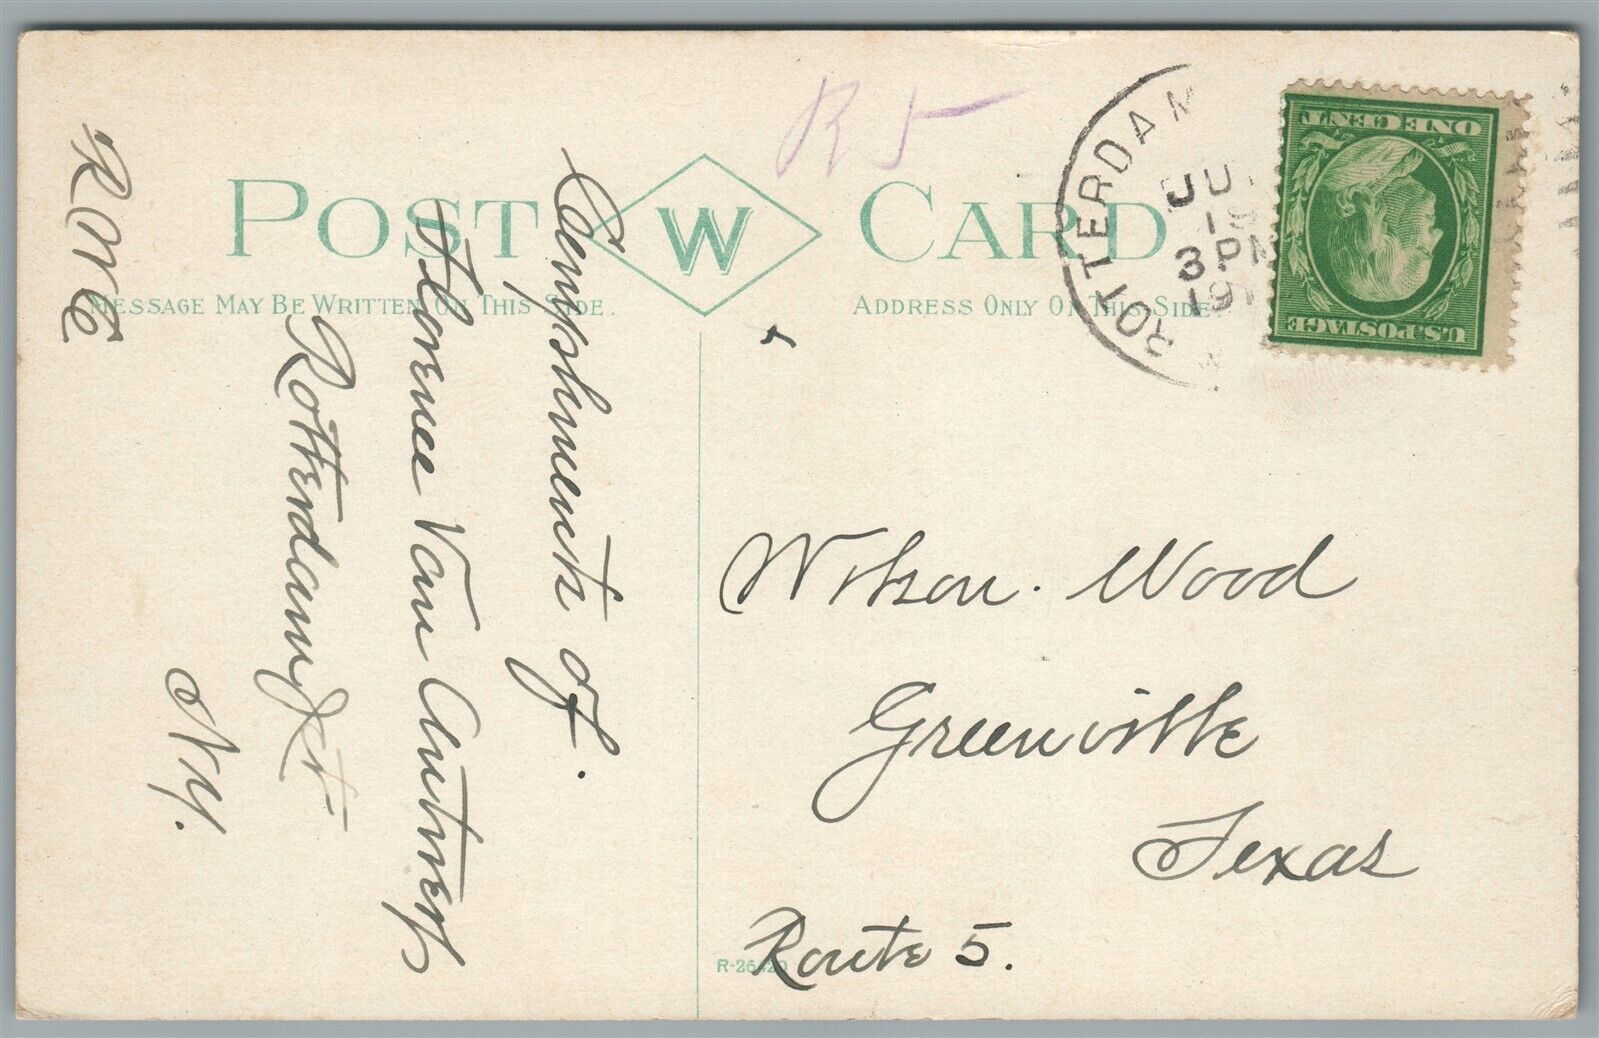 POST W CARD
MESSAGE MAY BE WRITTEN ON THIS SIDE.
ADDRESS ONLY ON THIS SIDE.
R 5
ROTTERDAM
3 PM
ONE CENT
U.S. POSTAGE
Complishments of.
Florence Van
Rotterdam Jct
N.Y.
Wilson. Wood
Greenville
Texas
Route 5.